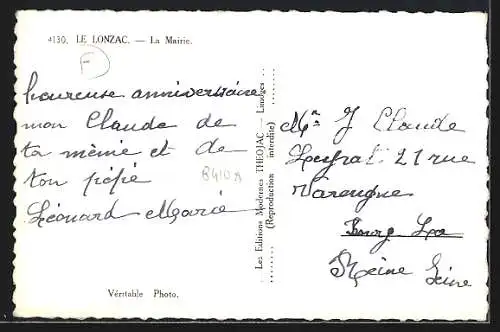 4130. LE LONZAC. — La Mairie.
F
heureuse anniverssaire
mon Claude de
ta mémé et de
ton pépé
Léonard Marie
B410A
Les Editions Modernes THEOJAC — Limoges
(Reproduction interdite)
Mr J Claude
21 rue
Varengue
Bourg La
Reine Seine
Véritable Photo.